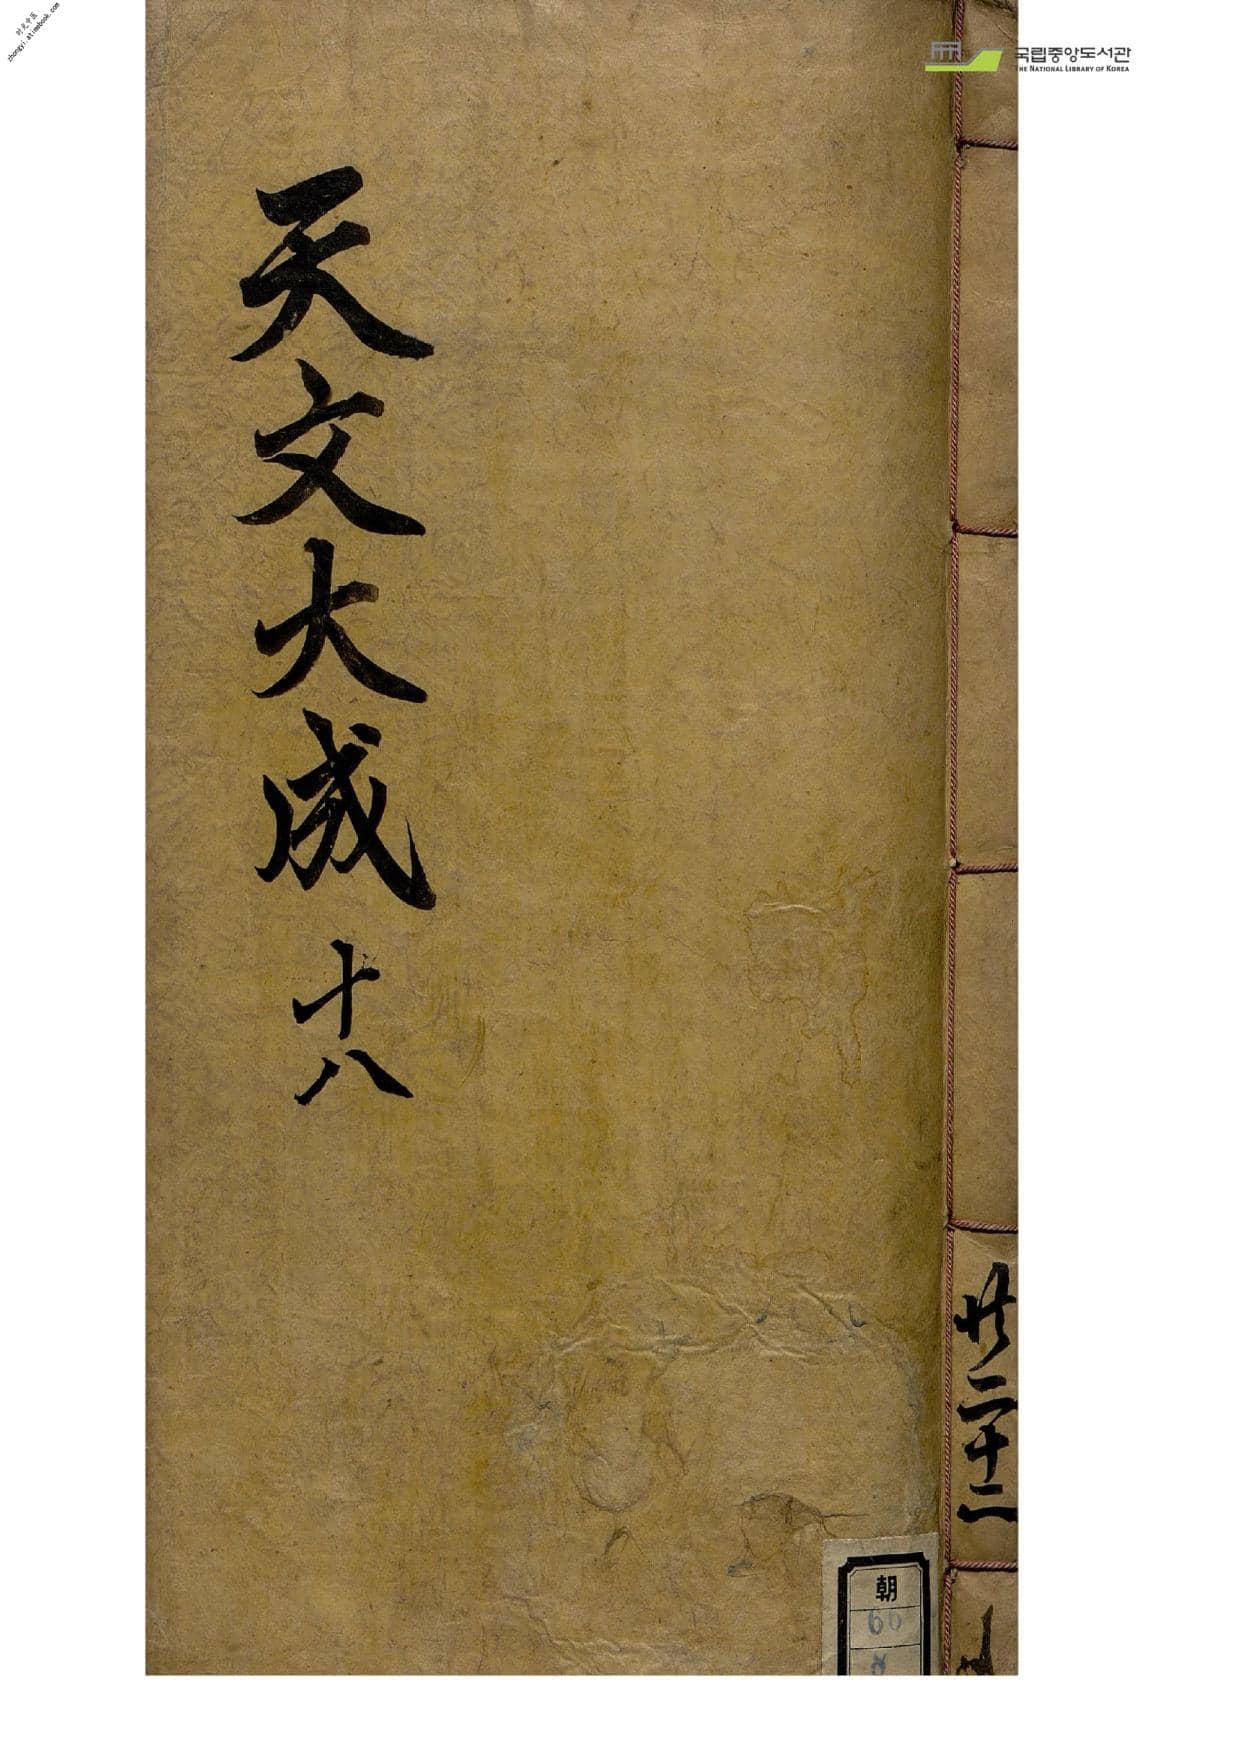 时光中医
zhongyi.atimebook.com
국립중앙도서관
THE NATIONAL LIBRARY OF KOREA
天文大成 十八
共二十二
朝
66